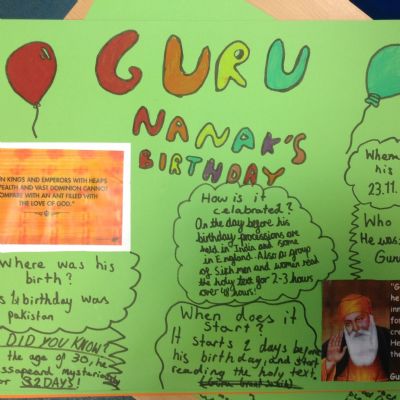 GURU
NANAK'S
BIRTHDAY
N KINGS AND EMPERORS WITH HEAPS
EALTH AND VAST DOMINION CANNOT
OMPARE WITH AN ANT FILLED WITH
THE LOVE OF GOD."
Where was his
birth?
s birthday was
pakistan
DID YOU KNOW?
the age of 30, he
ssapeared mysteriously
or 32 DAYS!
How is it
celebrated?
On the day before his
birthday processions are
held in India and some
in England. Also a group
of Sikh men and women read
the holy text for 2-3 hours
over 48 hours!
When does it
start?
It starts 2 days before
his birthday, and start
reading the holy text.
When
his
23.11.
Who
He was
Guru
"G
he
inn
for
cre
He
the
Gu